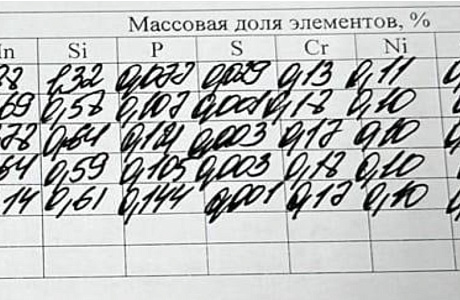 Массовая доля элементов, %
Mn Si P S Cr Ni
38 1,32 0,077 0,029 0,13 0,11
69 0,58 0,107 0,001 0,18 0,10
78 0,64 0,121 0,003 0,17 0,10
64 0,59 0,105 0,003 0,18 0,10
14 0,61 0,144 0,001 0,17 0,10